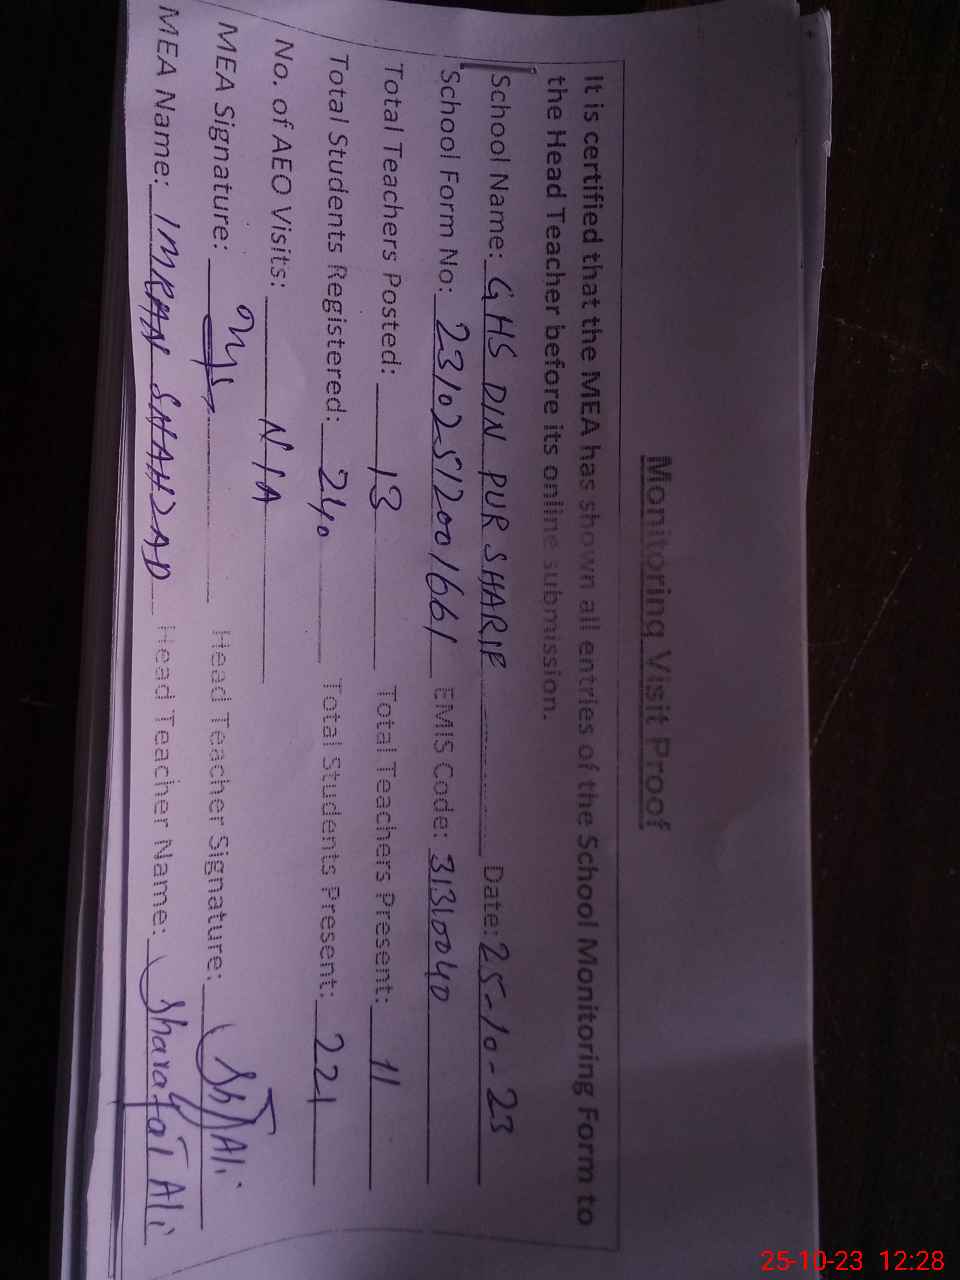 Monitoring Visit Proof
It is certified that the MEA has shown all entries of the School Monitoring Form to
the Head Teacher before its online submission.
School Name: GHS DIN PUR SHARIF Date: 25-10-23
School Form No: 23102512001661 EMIS Code: 31310040
Total Teachers Posted: 13 Total Teachers Present: 11
Total Students Registered: 240 Total Students Present: 221
No. of AEO Visits: N/A
MEA Signature: Head Teacher Signature: Sh Ali
MEA Name: IMRAN SHAHZAD Head Teacher Name: Sharafat Ali
25-10-23 12:28